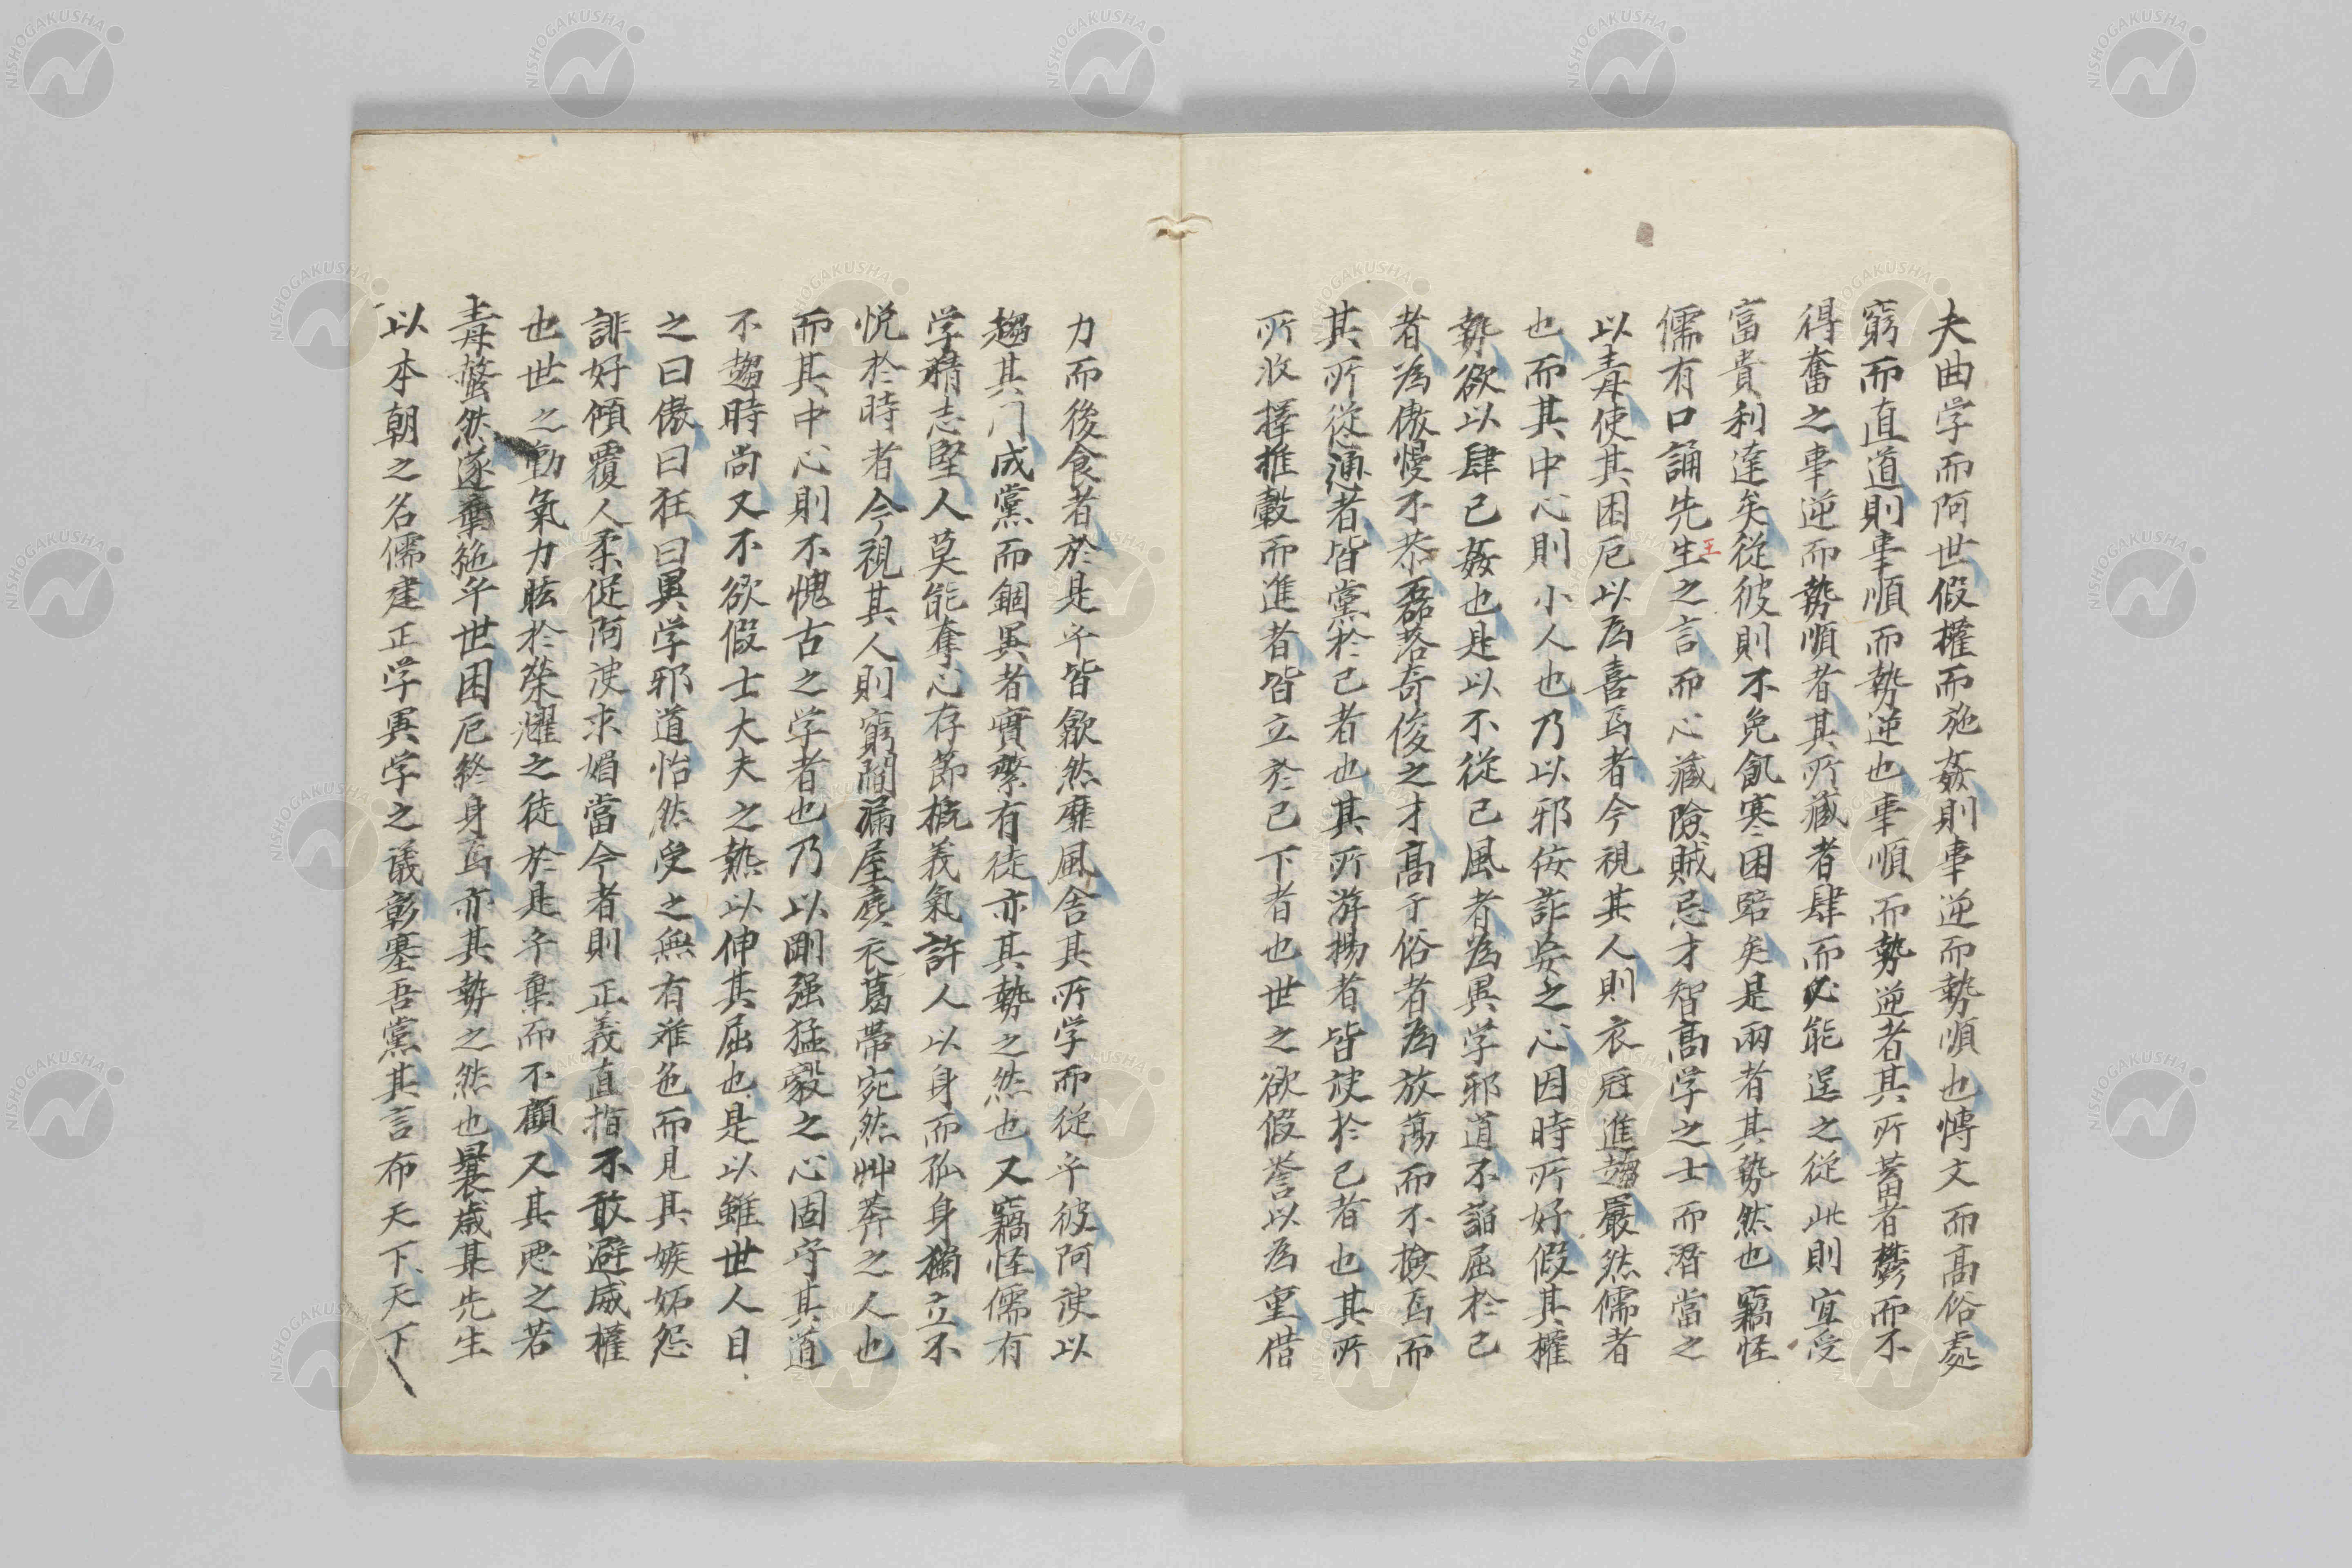 夫曲学而阿世假權而施姦則事逆而勢順也慱文而高俗處
窮而直道則事順而勢逆也事順而勢逆者其所蓄者鬱而不
得奮之事逆而勢順者其所蔵者肆而必能逞之従此則宜受
富貴利達矣従彼則不免飢寒困踣矣是両者其勢然也竊怪
儒有口誦先王之言而心藏險賊忌才智高学之士而潛當之
以毒使其困厄以為喜焉者今視其人則衣冠進趨嚴然儒者
也而其中心則小人也乃以邪佞詐妄之心因時所好假其權
勢欲以肆己姦也是以不従己風者為異学邪道不詣屈於己
者為傲慢不恭磊落奇俊之才高于俗者為放蕩而不撿焉而
其所従通者皆黨於己者也其所游揚者皆諛於己者也其所
所收擇推轂而進者皆立於己下者也世之欲假誉以為重借
力而後食者於是乎皆歙然靡風舎其所学而従乎彼阿諛以
趨其門成黨而錮異者實繁有徒亦其勢之然也又竊怪儒有
学精志堅人莫能奪心存節槪義氣許人以身而孤身獨立不
悦於時者今視其人則窮閻漏屋麁衣葛帯宛然艸莽之人也
而其中心則不愧古之学者也乃以剛强猛毅之心固守其道
不趨時尚又不欲假士大夫之熱以伸其屈也是以雖世人目
之曰傲曰狂曰異学邪道怡然受之無有难色而見其嫉妬怨
誹好傾覆人柔促阿諛求媚當今者則正義直指不敢避威權
也世之勤氣力眩於榮耀之徒於是乎棄而不顧又其悪之若
毒螫然遂棄絶乎世困厄終身焉亦其勢之然也曩歳某先生
以本朝之名儒建正学異学之議彰塞吾黨其言布天下天下
NISHOGAKUSHA